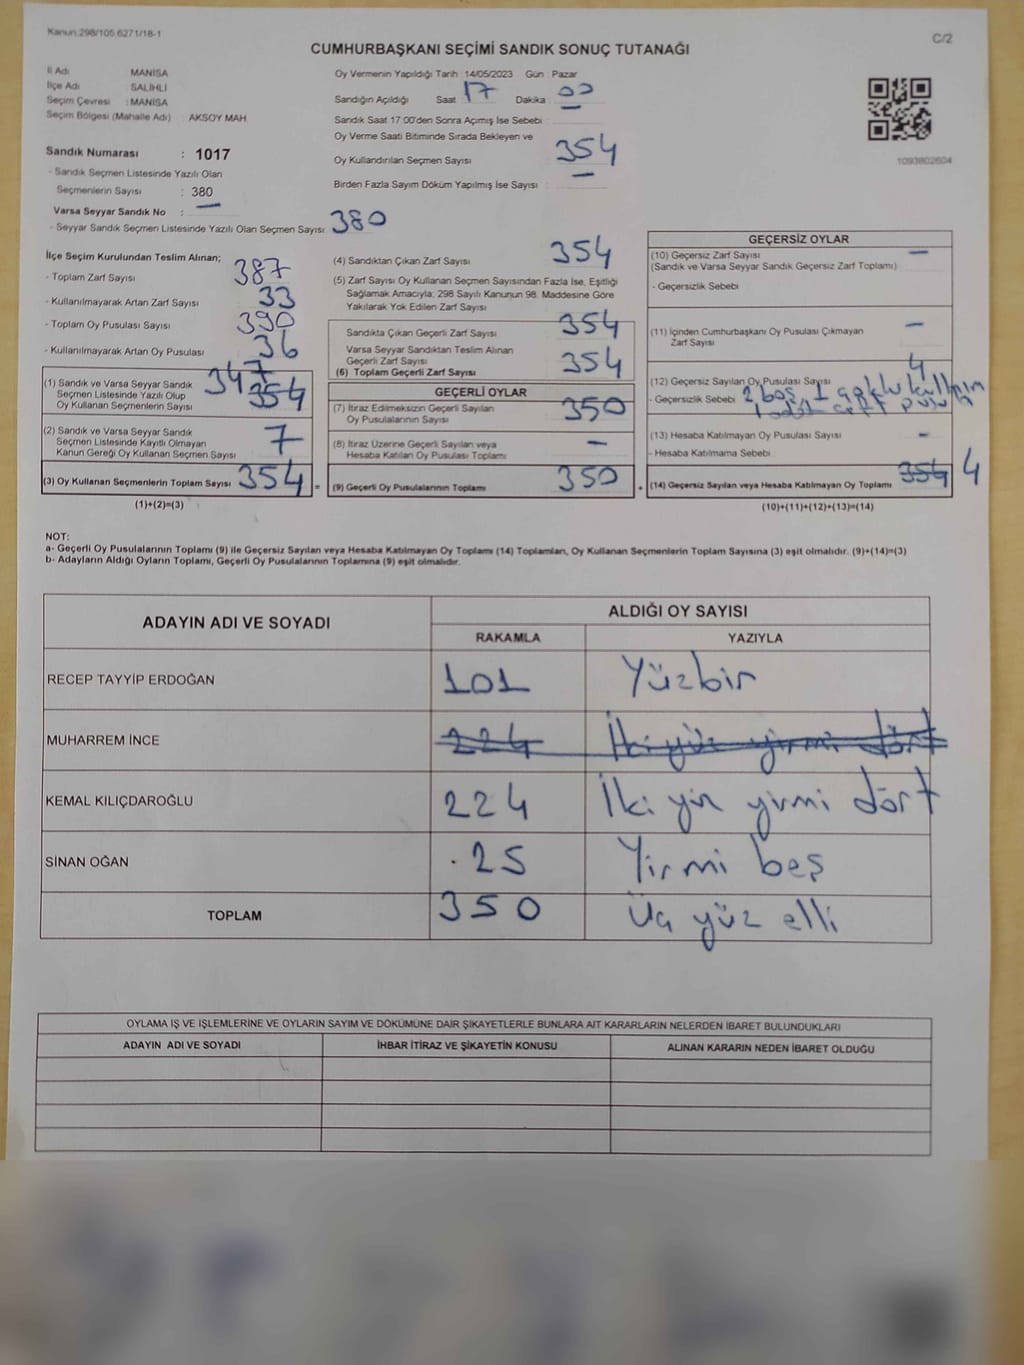 Kanun.298/105.6271/18-1
C/2
CUMHURBAŞKANI SEÇİMİ SANDIK SONUÇ TUTANAĞI
İl Adı MANİSA
İlçe Adı SALİHLİ
Seçim Çevresi : MANİSA
Seçim Bölgesi (Mahalle Adı) : AKSOY MAH.
Sandık Numarası : 1017
- Sandık Seçmen Listesinde Yazılı Olan
Seçmenlerin Sayısı : 380
Varsa Seyyar Sandık No : —
- Seyyar Sandık Seçmen Listesinde Yazılı Olan Seçmen Sayısı 380
Oy Vermenin Yapıldığı Tarih 14/05/2023 Gün Pazar
Sandığın Açıldığı Saat 17 Dakika : 00
Sandık Saat 17:00'den Sonra Açımış İse Sebebi : —
Oy Verme Saati Bitiminde Sırada Bekleyen ve
Oy Kullandırılan Seçmen Sayısı : 354
Birden Fazla Sayım Döküm Yapılmış İse Sayısı : —
1093802604
İlçe Seçim Kurulundan Teslim Alınan;
- Toplam Zarf Sayısı 387
- Kullanılmayarak Artan Zarf Sayısı 33
- Toplam Oy Pusulası Sayısı 390
- Kullanılmayarak Artan Oy Pusulası 36
(1) Sandık ve Varsa Seyyar Sandık 347
Seçmen Listesinde Yazılı Olup 354
Oy Kullanan Seçmenlerin Sayısı
(2) Sandık ve Varsa Seyyar Sandık
Seçmen Listesinde Kayıtlı Olmayan 7
Kanun Gereği Oy Kullanan Seçmen Sayısı
(3) Oy Kullanan Seçmenlerin Toplam Sayısı 354 =
(1)+(2)=(3)
(4) Sandıktan Çıkan Zarf Sayısı 354
(5) Zarf Sayısı Oy Kullanan Seçmen Sayısından Fazla İse, Eşitliği
Sağlamak Amacıyla; 298 Sayılı Kanunun 98. Maddesine Göre
Yakılarak Yok Edilen Zarf Sayısı
Sandıkta Çıkan Geçerli Zarf Sayısı 354
Varsa Seyyar Sandıktan Teslim Alınan
Geçerli Zarf Sayısı 354
(6) Toplam Geçerli Zarf Sayısı
GEÇERLİ OYLAR
(7) İtiraz Edilmeksizin Geçerli Sayılan 350
Oy Pusulalarının Sayısı
(8) İtiraz Üzerine Geçerli Sayılan veya —
Hesaba Katılan Oy Pusulası Toplamı
(9) Geçerli Oy Pusulalarının Toplamı 350 +
GEÇERSİZ OYLAR
(10) Geçersiz Zarf Sayısı —
(Sandık ve Varsa Seyyar Sandık Geçersiz Zarf Toplamı)
- Geçersizlik Sebebi
(11) İçinden Cumhurbaşkanı Oy Pusulası Çıkmayan —
Zarf Sayısı
(12) Geçersiz Sayılan Oy Pusulası Sayısı 4
- Geçersizlik Sebebi 2 boş 1
(13) Hesaba Katılmayan Oy Pusulası Sayısı —
- Hesaba Katılmama Sebebi
(14) Geçersiz Sayılan veya Hesaba Katılmayan Oy Toplamı 354 4
(10)+(11)+(12)+(13)=(14)
NOT:
a- Geçerli Oy Pusulalarının Toplamı (9) ile Geçersiz Sayılan veya Hesaba Katılmayan Oy Toplamı (14) Toplamları, Oy Kullanan Seçmenlerin Toplam Sayısına (3) eşit olmalıdır. (9)+(14)=(3)
b- Adayların Aldığı Oyların Toplamı, Geçerli Oy Pusulalarının Toplamına (9) eşit olmalıdır.
ADAYIN ADI VE SOYADI ALDIĞI OY SAYISI
RAKAMLA YAZIYLA
RECEP TAYYİP ERDOĞAN 101 Yüzbir
MUHARREM İNCE 224 İki yüz yirmi dört
KEMAL KILIÇDAROĞLU 224 İki yüz yirmi dört
SİNAN OĞAN 25 Yirmi beş
TOPLAM 350 Üç yüz elli
OYLAMA İŞ VE İŞLEMLERİNE VE OYLARIN SAYIM VE DÖKÜMÜNE DAİR ŞİKAYETLERLE BUNLARA AİT KARARLARIN NELERDEN İBARET BULUNDUKLARI
ADAYIN ADI VE SOYADI İHBAR İTİRAZ VE ŞİKAYETİN KONUSU ALINAN KARARIN NEDEN İBARET OLDUĞU